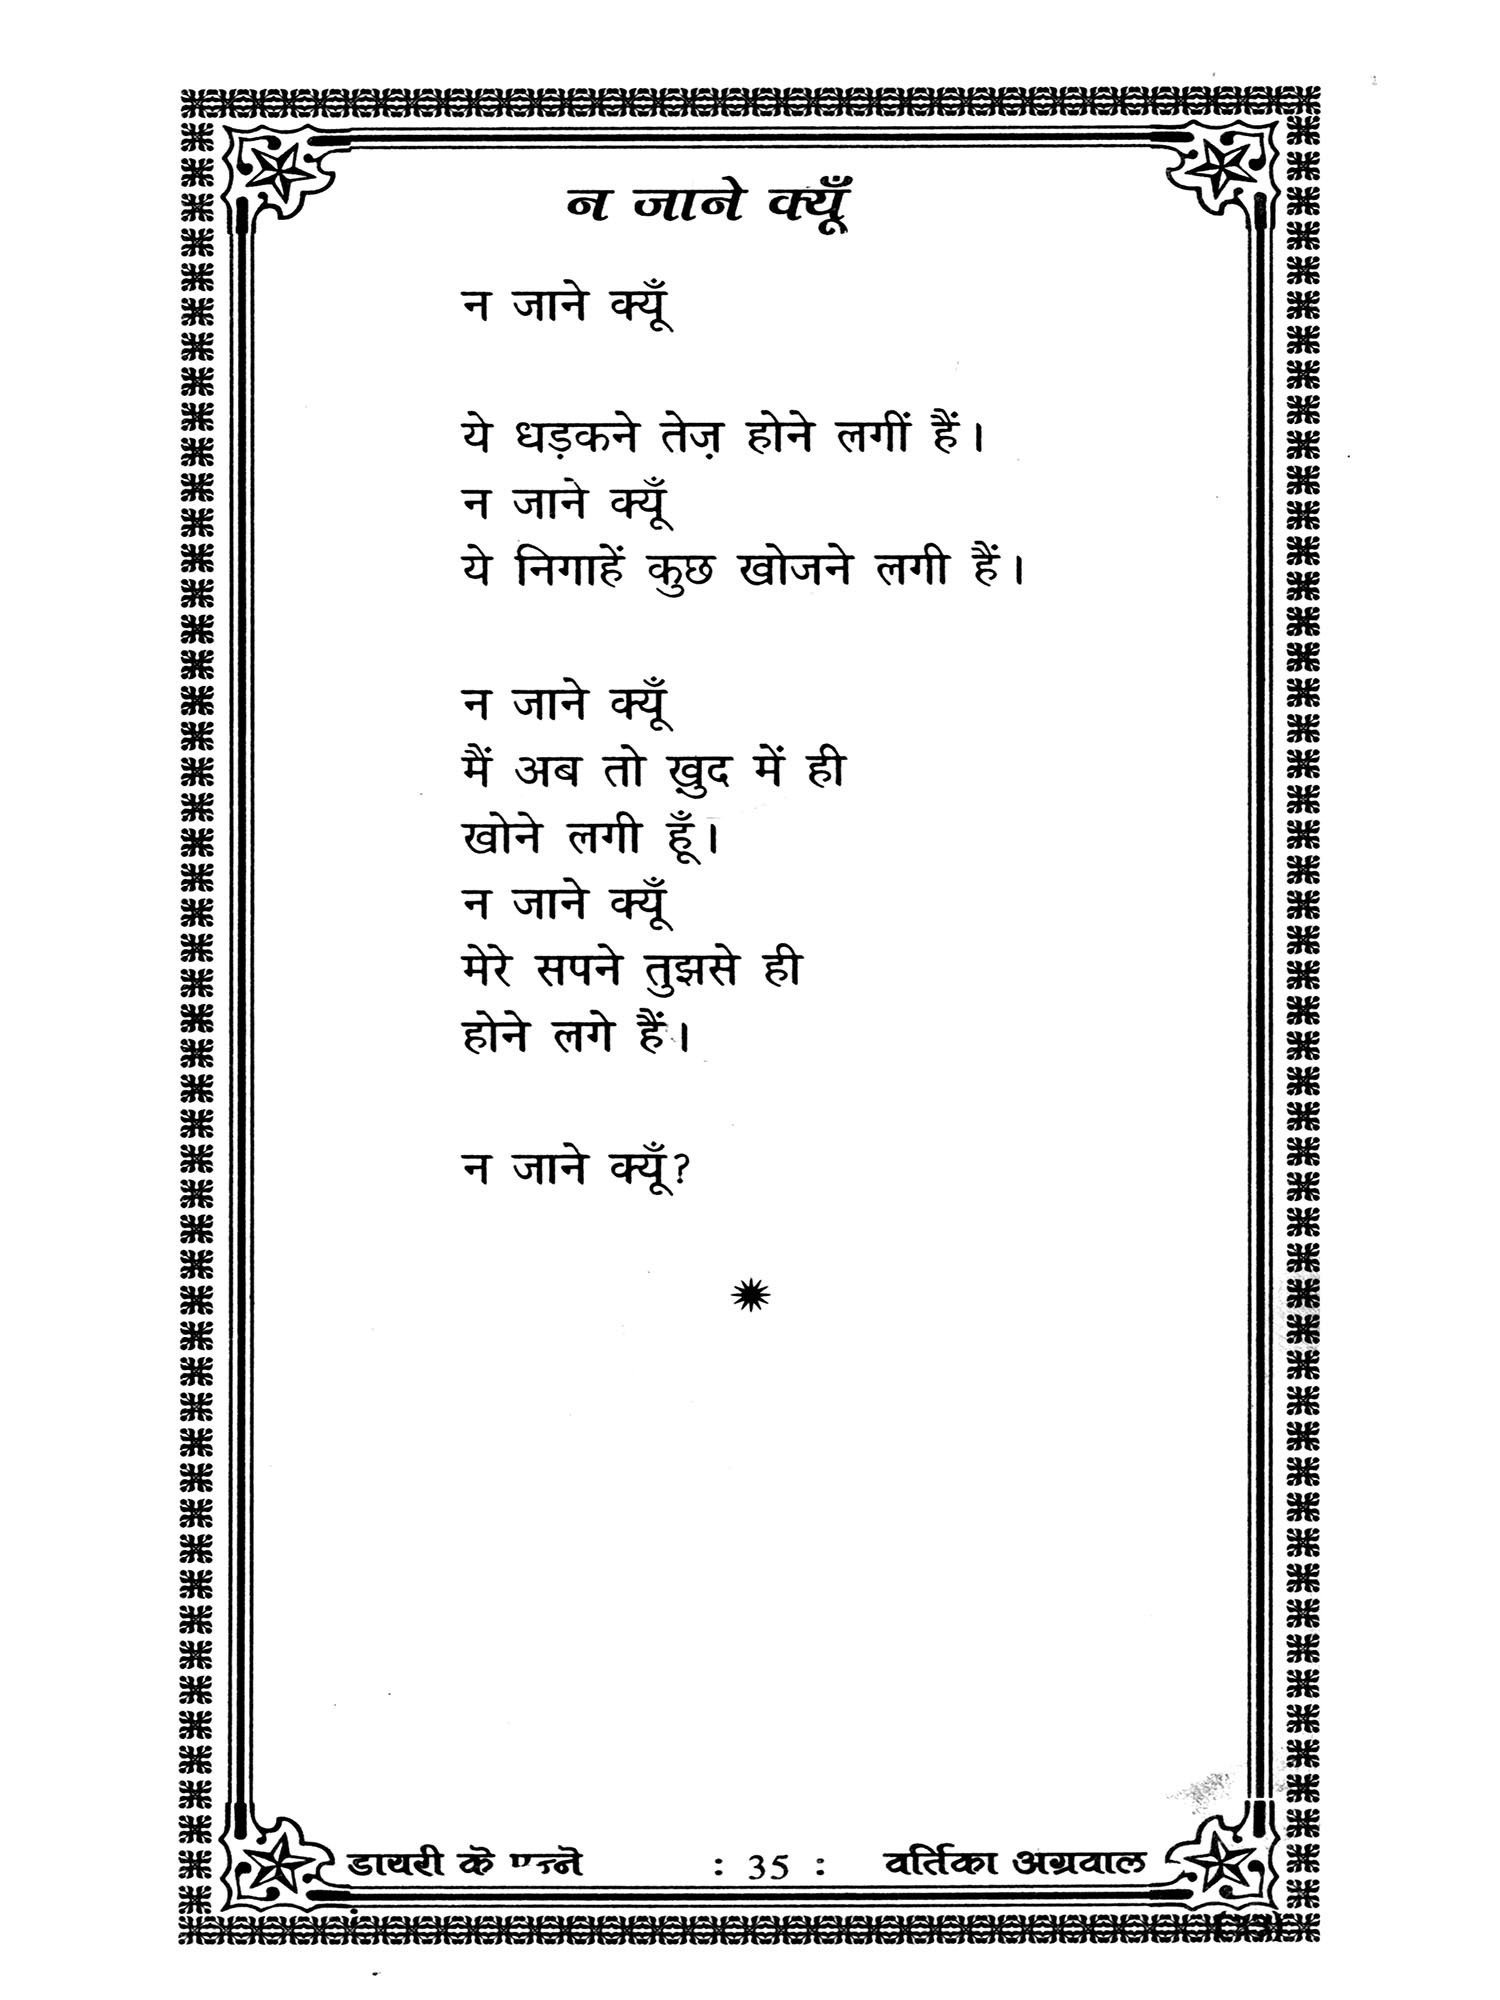 न जाने क्यूँ
न जाने क्यूँ
ये धड़कने तेज़ होने लगीं हैं।
न जाने क्यूँ
ये निगाहें कुछ खोजने लगी हैं।
न जाने क्यूँ
मैं अब तो ख़ुद में ही
खोने लगी हूँ।
न जाने क्यूँ
मेरे सपने तुझसे ही
होने लगे हैं।
न जाने क्यूँ?
डायरी के पन्ने : 35 : वर्तिका अग्रवाल